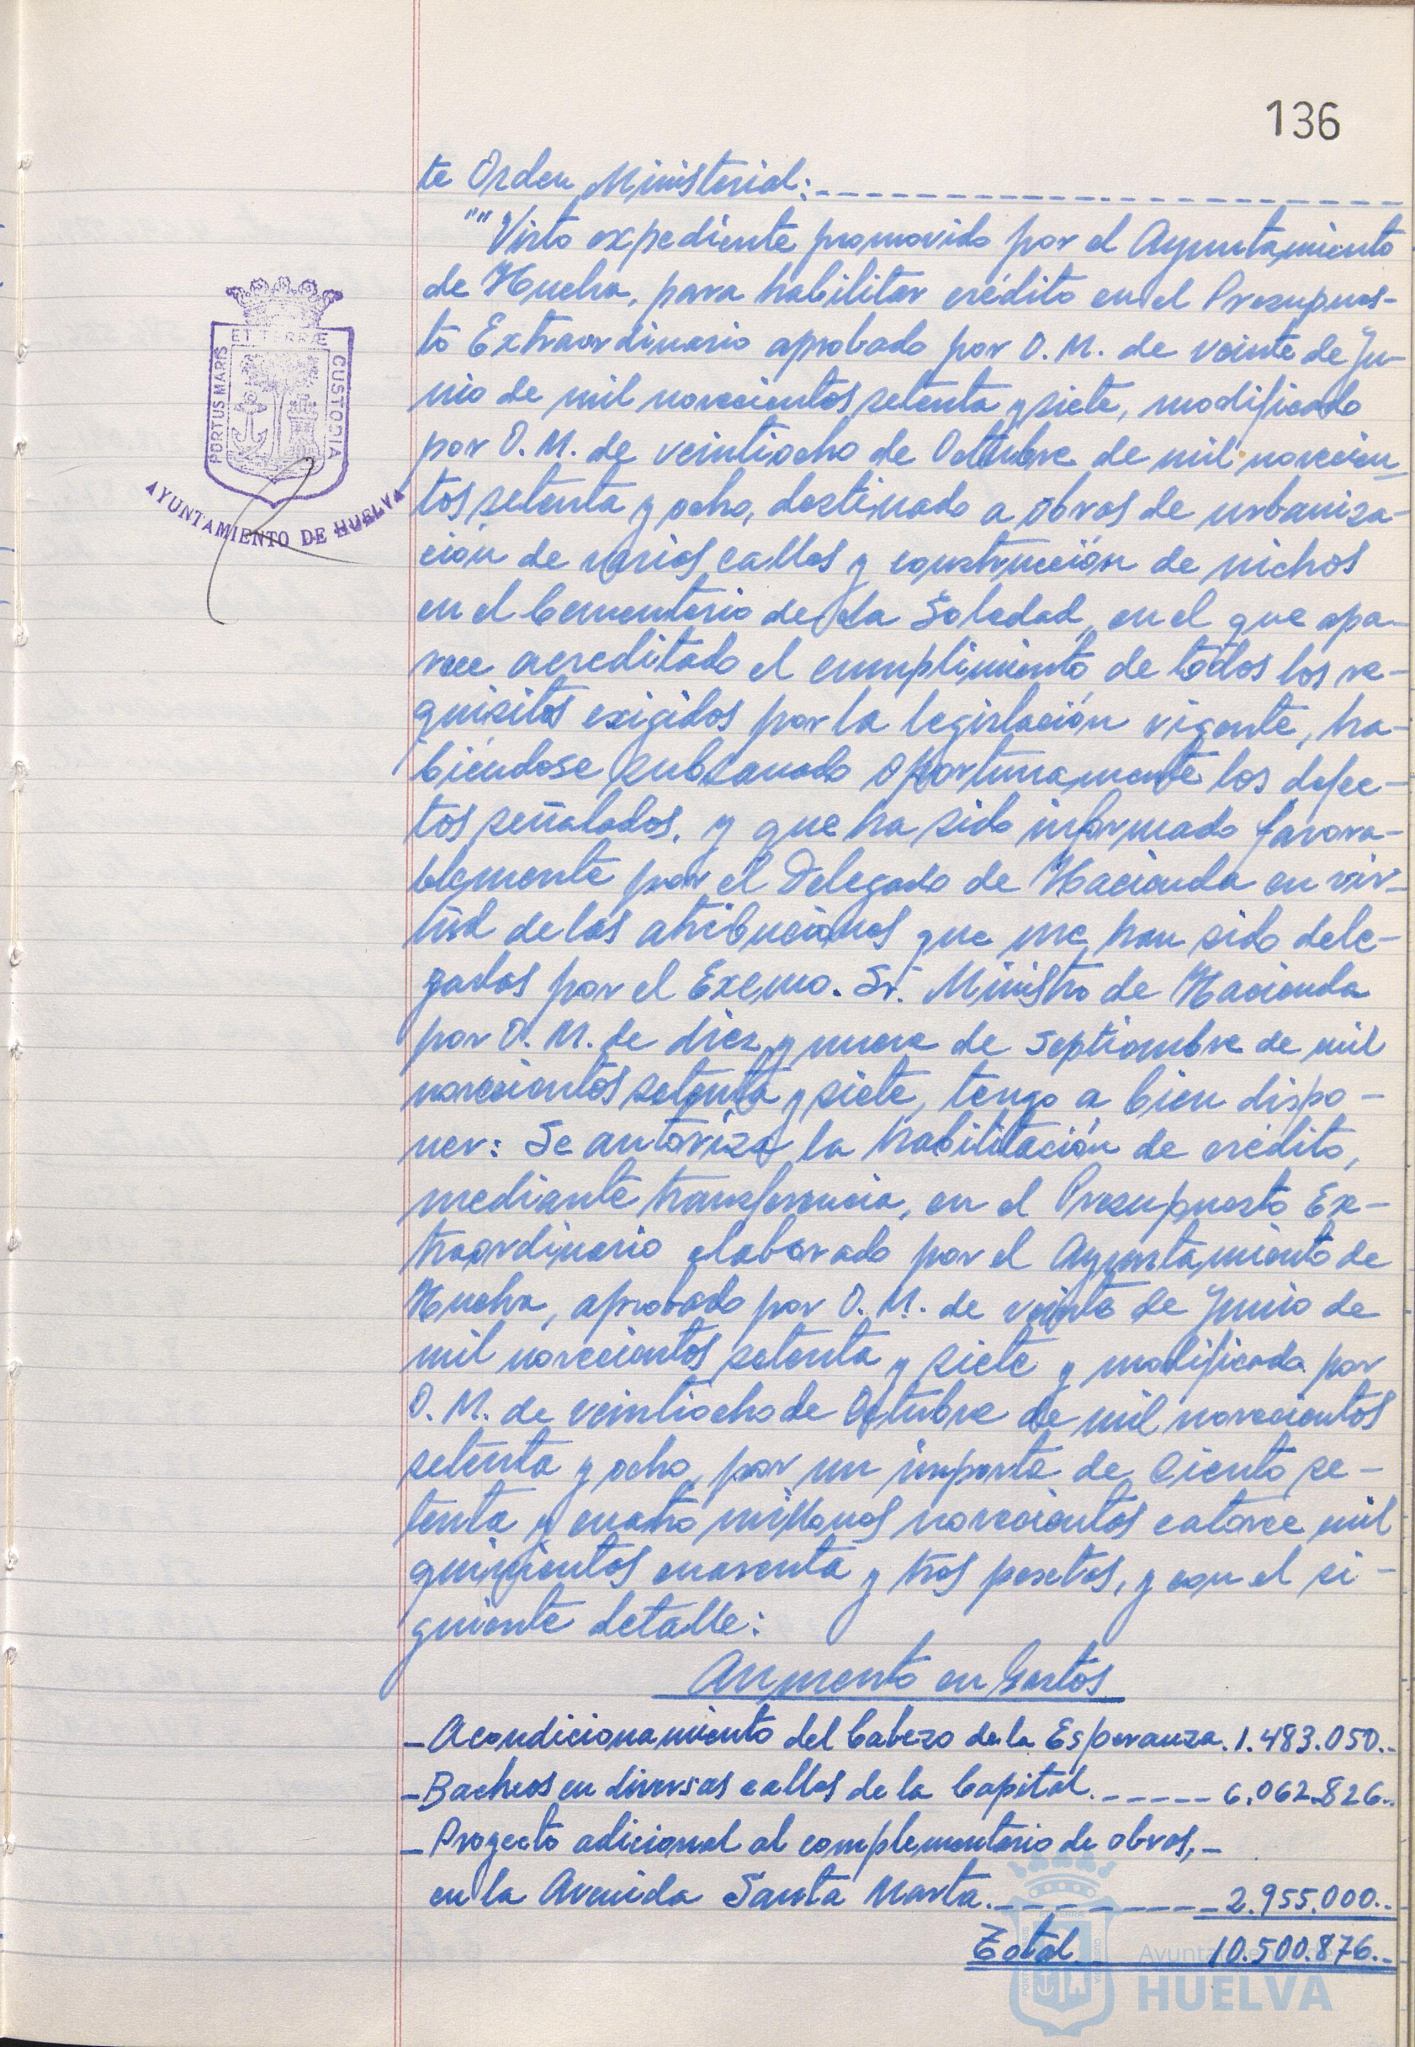 136
te Orden Ministerial:
""Visto expediente promovido por el Ayuntamiento
de Huelva, para habilitar crédito en el Presupues-
to Extraordinario aprobado por O. M. de veinte de Ju-
nio de mil novecientos setenta y siete, modificado
por O. M. de veintiocho de Octubre de mil novecien
tos setenta y ocho, destinado a obras de urbaniza-
ción de varias calles y construcción de nichos
en el Cementerio de La Soledad, en el que apa-
rece acreditado el cumplimiento de todos los re-
quisitos exigidos por la legislación vigente, ha-
biéndose subsanado oportunamente los defec-
tos señalados, y que ha sido informado favora-
blemente por el Delegado de Hacienda en vir-
tud de las atribuciones que me han sido dele-
gadas por el Excmo. Sr. Ministro de Hacienda
por O. M. de diez y nueve de Septiembre de mil
novecientos setenta y siete, tengo a bien dispo-
ner: Se autoriza la habilitación de crédito,
mediante transferencia, en el Presupuesto Ex-
traordinario elaborado por el Ayuntamiento de
Huelva, aprobado por O. M. de veinte de Junio de
mil novecientos setenta y siete y modificada por
O. M. de veintiocho de Octubre de mil novecientos
setenta y ocho, por un importe de ciento se-
tenta y cuatro millones novecientos catorce mil
quinientos cuarenta y tres pesetas, y con el si-
guiente detalle:
Aumento en Gastos
- Acondicionamiento del Cabezo de la Esperanza. 1.483.050.-
- Bacheos en diversas calles de la Capital. 6.062.826.-
- Proyecto adicional al complementario de obras,-
en la Avenida Santa Marta. 2.955.000.-
Total 10.500.876.-
ET TERRÆ
PORTUS MARIS
CUSTODIA
AYUNTAMIENTO DE HUELVA
Ayuntamiento de
HUELVA